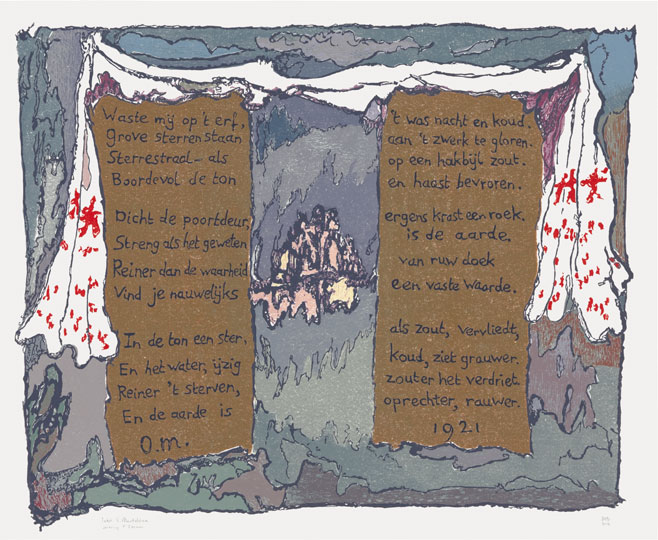 Waste mij op 't erf,
Grove sterren staan
Sterrestraal – als
Boordevol de ton
Dicht de poortdeur,
Streng als het geweten
Reiner dan de waarheid
Vind je nauwelijks
In de ton een ster.
En het water, ijzig
Reiner 't sterven,
En de aarde is
O.M.
't was nacht en koud.
aan 't zwerk te gloren.
op een hakbijl zout.
en haast bevroren.
ergens krast een roek.
is de aarde.
van ruw doek
een vaste waarde.
als zout, vervliedt,
koud, ziet grauwer.
zouter het verdriet
oprechter, rauwer.
1921